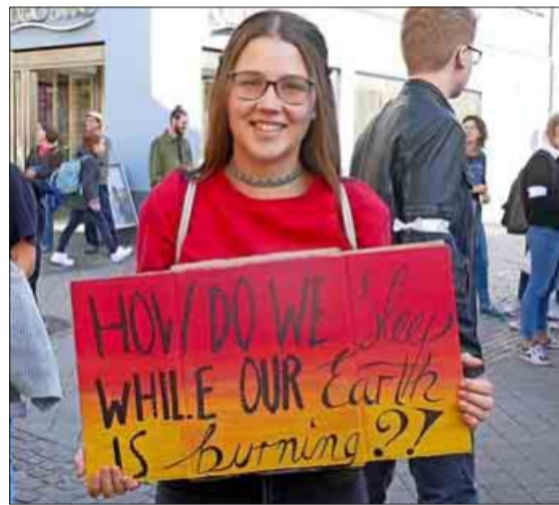 HOW DO WE Sleep
WHILE OUR Earth
IS burning?!